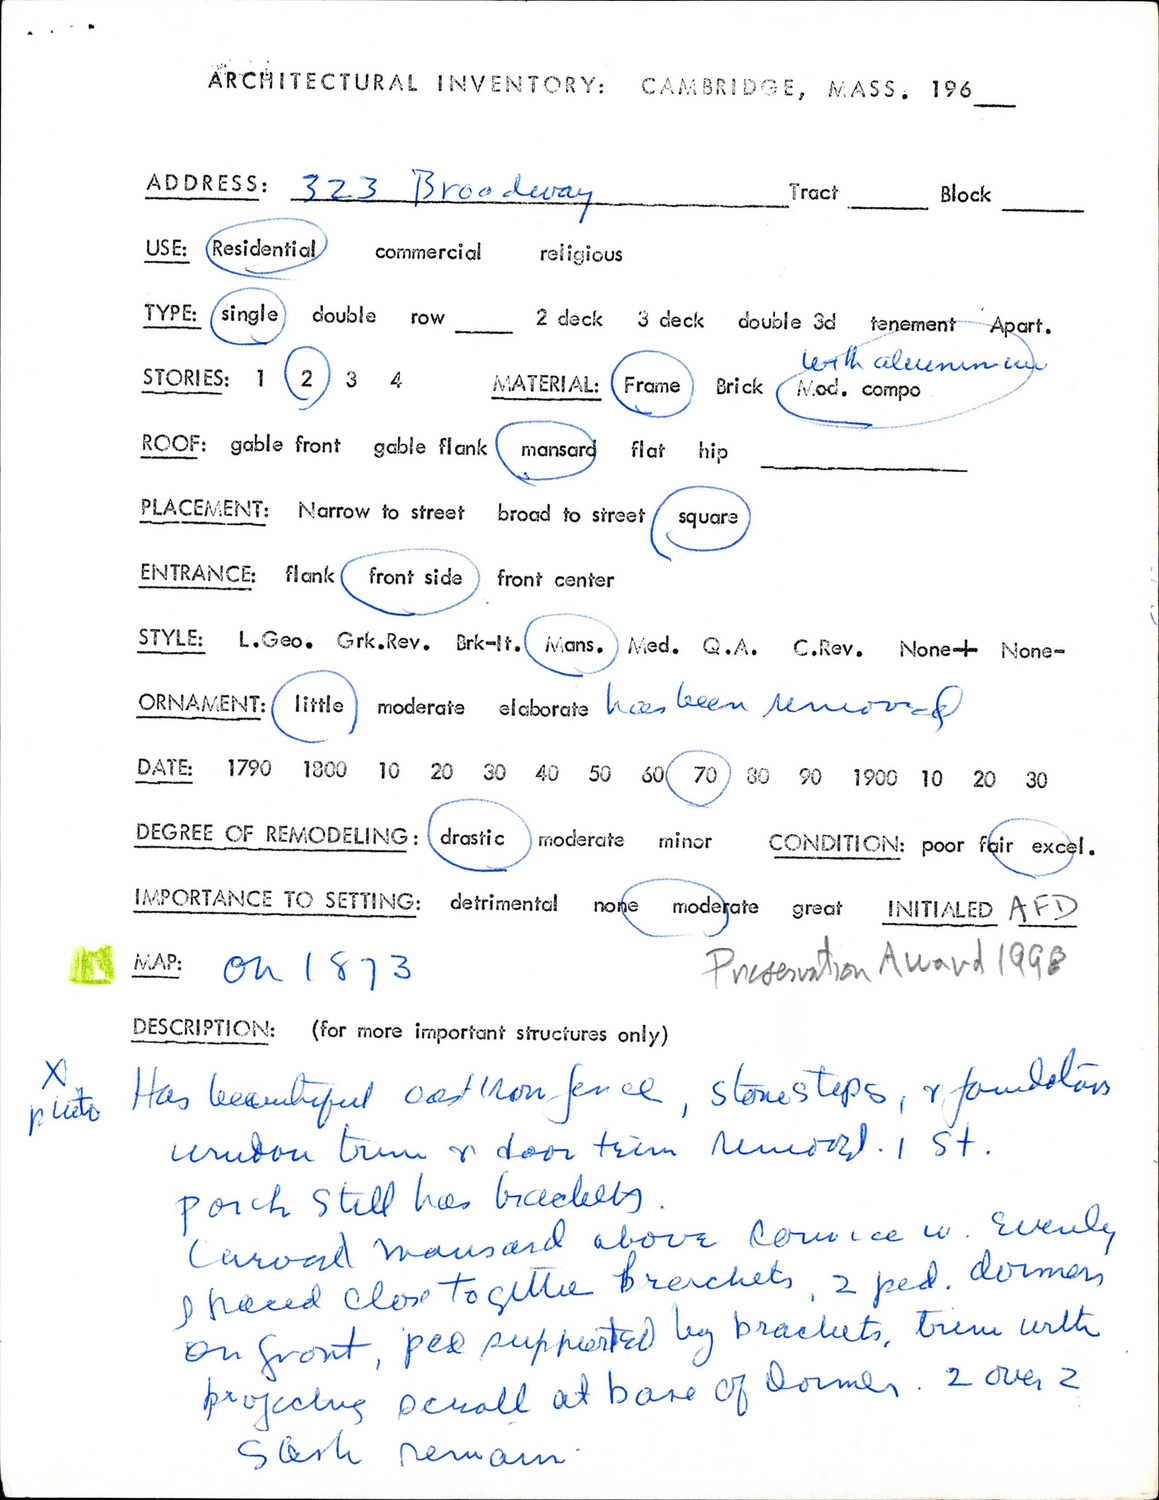 ARCHITECTURAL INVENTORY: CAMBRIDGE, MASS. 196___
ADDRESS: 323 Broadway Tract ____ Block ____
USE: Residential commercial religious
TYPE: single double row ____ 2 deck 3 deck double 3d tenement Apart.
with aluminum
STORIES: 1 2 3 4 MATERIAL: Frame Brick Mod. compo
ROOF: gable front gable flank mansard flat hip ____
PLACEMENT: Narrow to street broad to street square
ENTRANCE: flank front side front center
STYLE: L.Geo. Grk.Rev. Brk-It. Mans. Med. Q.A. C.Rev. None+ None-
ORNAMENT: little moderate elaborate has been removed
DATE: 1790 1800 10 20 30 40 50 60 70 80 90 1900 10 20 30
DEGREE OF REMODELING: drastic moderate minor CONDITION: poor fair excel.
IMPORTANCE TO SETTING: detrimental none moderate great INITIALED AFD
MAP: on 1873 Preservation Award 1998
DESCRIPTION: (for more important structures only)
X Has beautiful cast iron fence, stone steps, & foundation
photo window trim & door trim removed. 1 St.
porch still has brackets.
Curved mansard above cornice w. evenly
spaced close together brackets, 2 ped. dormers
on front, ped supported by brackets, trim with
projecting scroll at base of dormer. 2 over 2
sash remain.